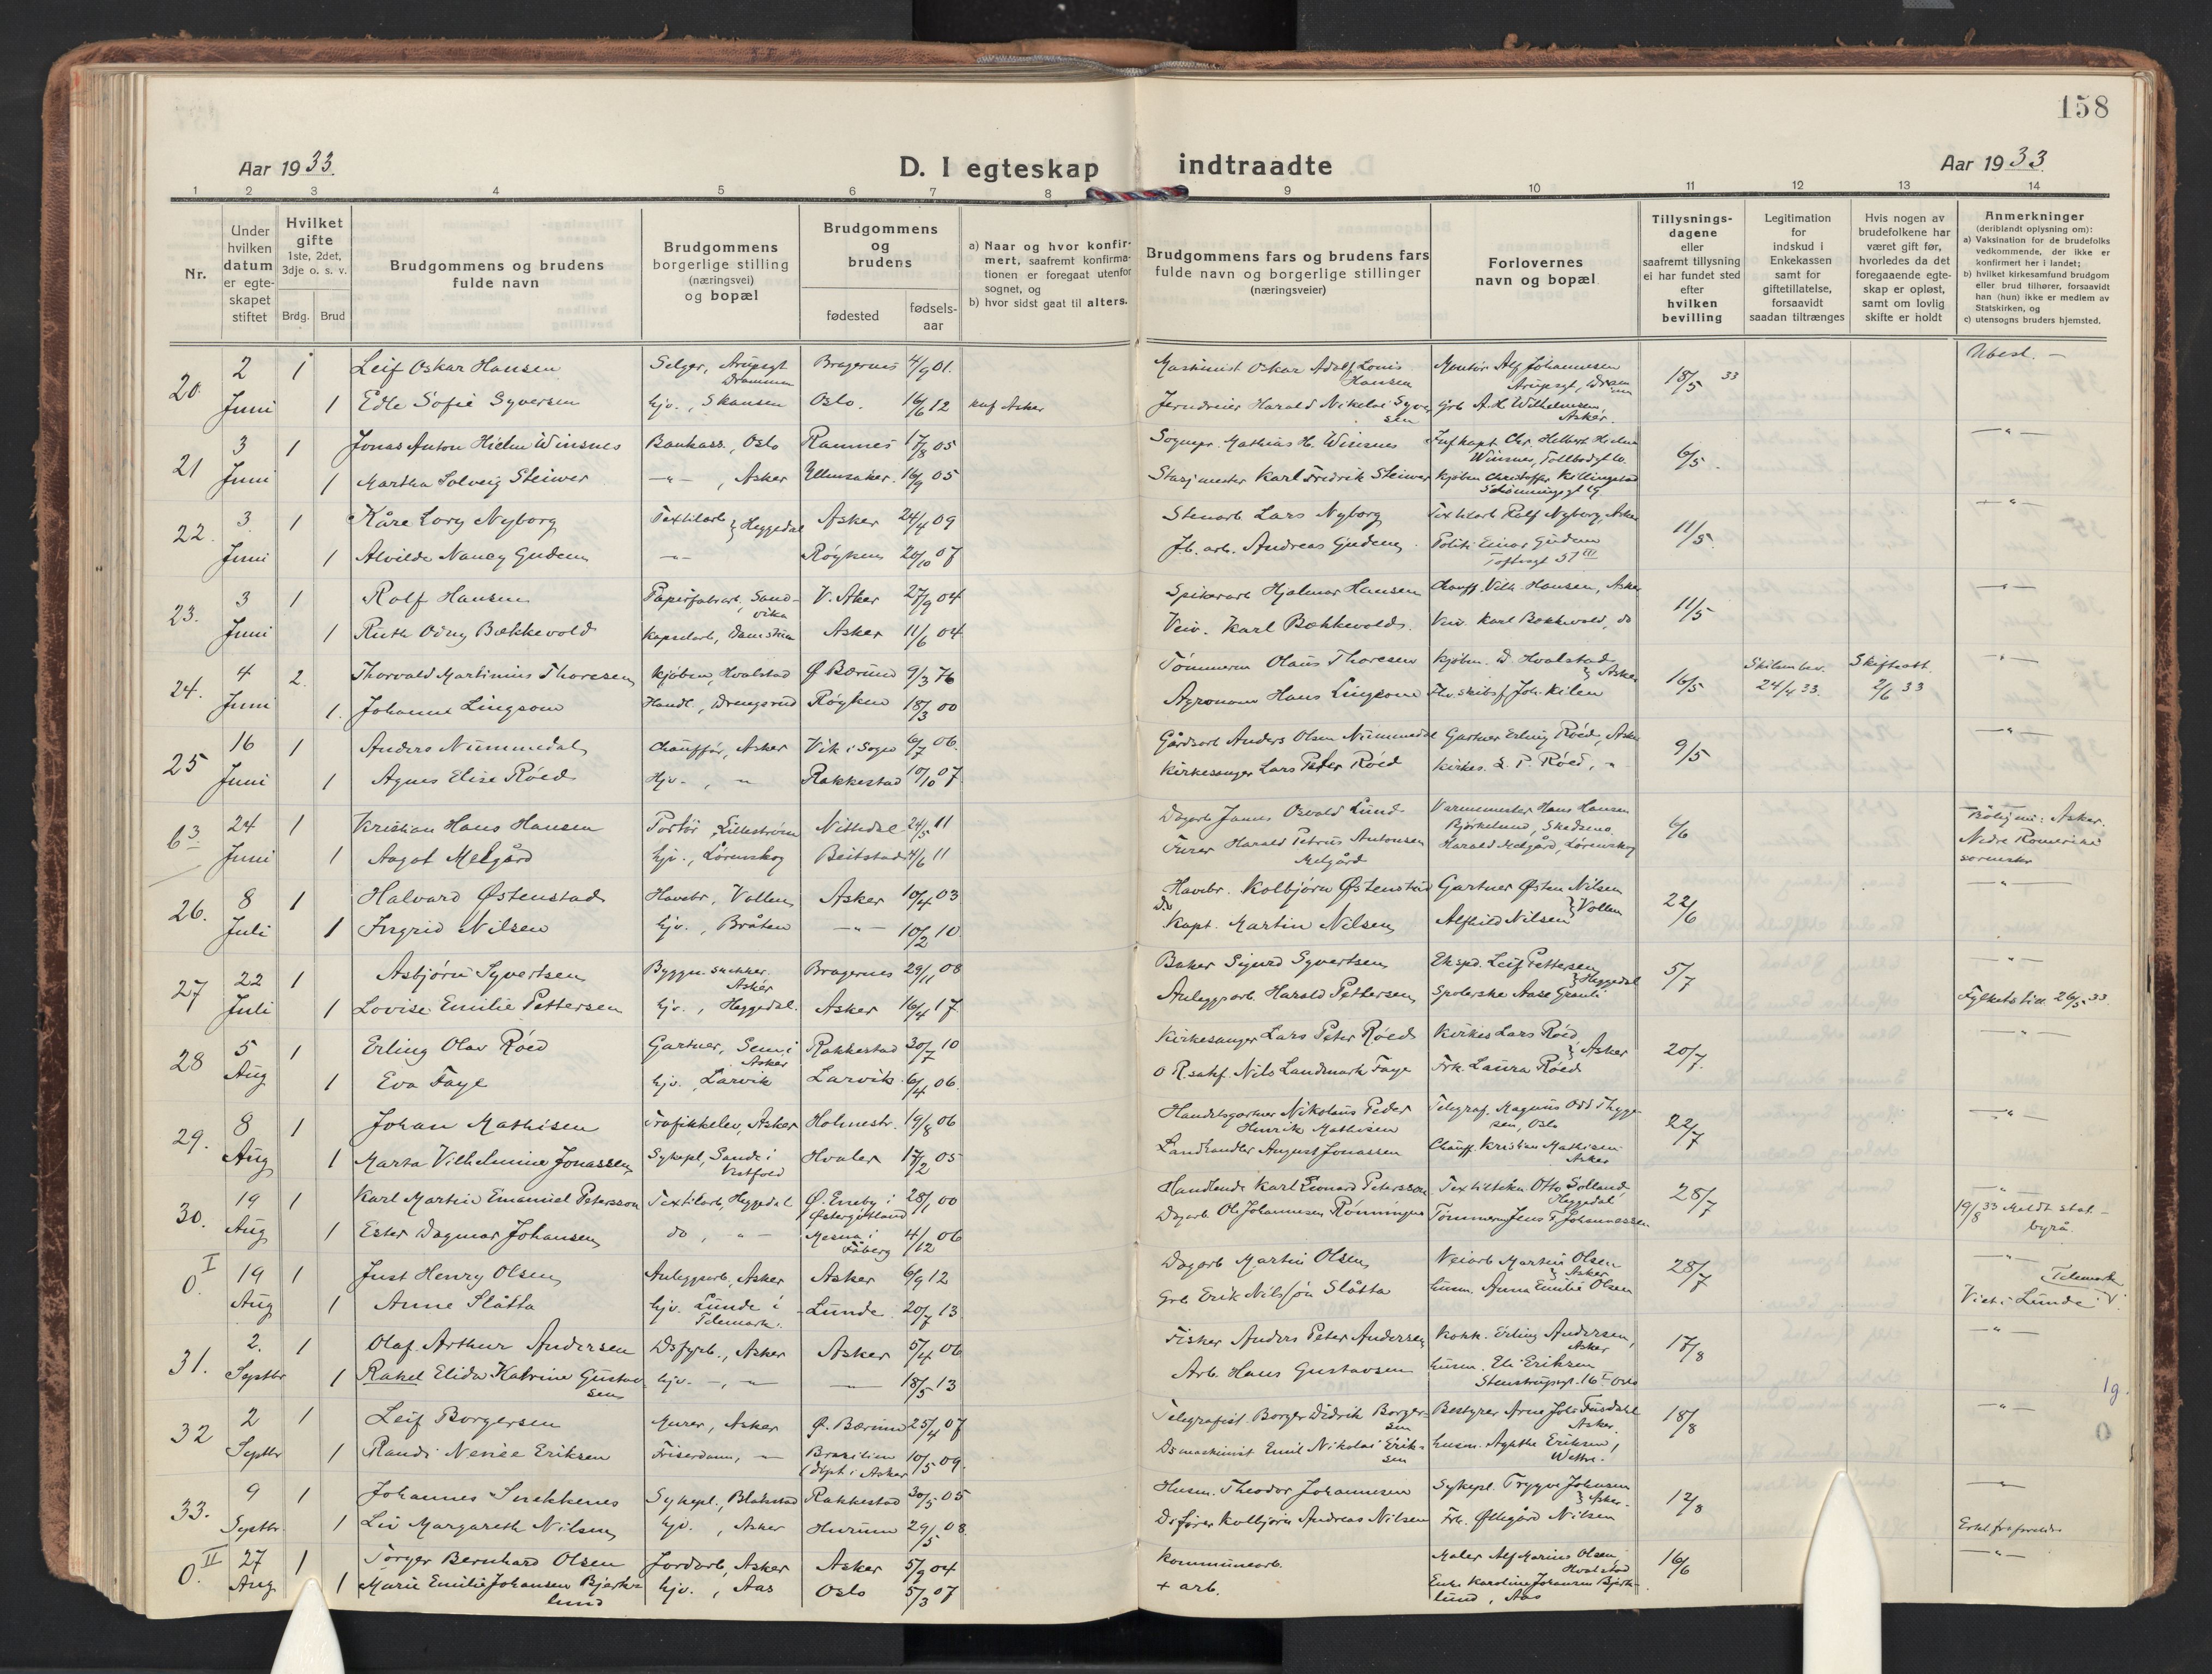 158
Aar 1933.
D. I egteskap indtraadte
Aar 1933.
1 2 3 4 5 6 7 8 9 10 11 12 13 14
Nr.
Under hvilken datum er egteskapet stiftet
Hvilket gifte 1ste, 2det, 3dje o. s. v.
Brdg. Brud
Brudgommens og brudens fulde navn
Brudgommens borgerlige stilling (næringsvei) og bopæl
Brudgommens og brudens
fødested
fødsels-aar
a) Naar og hvor konfirmert, saafremt konfirmationen er foregaat utenfor sognet, og
b) hvor sidst gaat til alters.
Brudgommens fars og brudens fars fulde navn og borgerlige stillinger (næringsveier)
Forlovernes navn og bopæl
Tillysnings-dagene eller saafremt tillysning ei har fundet sted efter hvilken bevilling
Legitimation for indskud i Enkekassen samt for giftetillatelse, forsaavidt saadan tiltrænges
Hvis nogen av brudefolkene har været gift før, hvorledes da det foregaaende egteskap er opløst, samt om lovlig skifte er holdt
Anmerkninger (deriblandt oplysning om):
a) Vaksination for de brudefolks vedkommende, der ikke er konfirmert her i landet;
b) hvilket kirkesamfund brudgom eller brud tilhører, forsaavidt han (hun) ikke er medlem av Statskirken, og
c) utensogns bruders hjemsted.
20. 2 Juni 1 Leif Oskar Hansen Selger, Arupsgt Drammen Bragernes 4/9 01. Maskinist Oskar Adolf Louis Hansen Montør Alf Johannesen Arupsgt, Drammen 18/5 33 Ubest. —
1 Edle Sofie Syversen hjv., Skansen Oslo. 16/6 12 knf Asker Jerndreier Harald Nikolai Syversen Grb A. H. Wilhelmsen, Asker.
21 3 Juni 1 Jonas Anton Hielm Winsnes Bankass., Oslo Ramnes 17/8 05 Sognepr. Mathias H. Winsnes Inf kapt. Chr. Hielm Winsnes, Tollbodgt 6/5. — " —
1 Martha Solveig Steiwer — " —, Asker Ullensaker. 16/9 05 Stasjmester Karl Fredrik Steiwer Kjøbm Christoffer Killingstad Schønningsgt 19
22. 3. Juni 1 Kåre Lory Nyborg Textilarb } Heggedal Asker 24/4 09 Stenarb Lars Nyborg Textilarb Ralf Nyborg, Asker 11/5. — " —
1 Alvilde Nancy Gudem — " — Røyken 20/10 07 Jb. arb. Andreas Gudem. Politi Einar Gudem Toftesgt 51 III
23. 3 Juni 1 Rolf Hansen Papirfabrarb, Sandvika V. Aker 27/9 04 Spikerarb Hjalmar Hansen Chauff. Vilh. Hansen, Asker 11/5 — " —
1 Ruth Oding Bækkevold Kapselarb, Damstua Asker 11/6 04 Veiv. Karl Bækkevold. Veiv. Karl Bækkevold, do
24. 4 Juni 2. Thorvald Martinius Thoresen Kjøbm, Hvalstad Ø. Bærum 9/3 76 Tømmerm Olaus Thoresen Kjøbm. D. Hvalstad } Asker 16/5 Skilsm bev. 24/4 33. Skifteatt. 2/6 33 — " —
1. Johanne Lingsom Handl, Drengsrud Røyken 18/3 00 Agronom Hans Lingsom Fhv. skibsf. Joh. Kilen
25 16 Juni 1 Anders Nummedal Chauffør, Asker Vik i Sogn 6/7 06. Gårdsarb Anders Olsen Nummedal Gartner Erling Røed, Asker 9/5 — " —
1 Agnes Elise Røed Hjv. , " Rakkestad 10/10 07. Kirkesanger Lars Peter Røed Kirkes. L. P. Røed, "
24 Juni 1 Kristian Hans Hansen Portør, Lillestrøm Nittedal 24/5 11 Dagarb James Osvald Lund. Varmemester Hans Hansen Bjørkelund, Skedsmo. 6/6 Nedre Romerike
1 Aagot Melgård hjv., Lørenskog Beitstad 4/6 11 Furer Harald Petrus Antonsen Melgård Harald Melgård, Lørenskog
26. 8 Juli 1 Halvard Østenstad Havebr, Vollen Asker 10/4 03 Havebr. Kolbjørn Østenstad Gartner Østen Nilsen } Vollen 22/6 — " —
1 Ingrid Nilsen hjv., Bråten — " — 10/2 10. Kapt. Martin Nilsen Alfhild Nilsen
27 22 Juli 1 Asbjørn Syvertsen Byggn. snekker. Asker Bragernes 29/11 08 Baker Sigurd Syvertsen Eksped. Leif Pettersen } Heggedal 5/7 — " —
1 Lovise Emilie Pettersen hjv., Heggedal. Asker 16/4 17 Anleggsarb. Harald Pettersen Spolerske Aase Granli Fylkets till 26/5 33.
28 5 Aug 1 Erling Olav Røed Gartner, Sem i Asker Rakkestad 30/7 10 Kirkesanger Lars Peter Røed Kirkes Lars Røed } Asker 20/7. — " —
1 Eva Faye hjv. Larvik Larvik. 6/4 06. O R.sakf. Nils Landmark Faye Frk. Laura Røed
29. 8 Aug 1 Johan Mathisen Trafikkelev, Asker Holmestr. 19/8 06 Handelsgartner Nikolaus Peder Henrik Mathisen Telegraf. Magnus Odd Thygesen, Oslo 22/7 — " —
1 Marta Vilhelmine Jonassen Sykepl, Sande i Vestfold Hvaler 17/2 05 Landhandler August Jonassen Chauff. Kristian Mathisen Asker
30. 19 Aug 1 Karl Martin Emanuel Petersson Textilarb, Heggedal Ø. Eneby i Østergötland 28/1 00 Handlende Karl Leonard Petersson Textiltekn. Otto Solland Heggedal 28/7 — " —
1 Ester Dagmar Johansen do , " — Mesna i Fåberg 4/12 06 Dagarb Ole Johannesen Rønningen Tømmerm Jens F. Johannessen 19/8 33 Meldt stat. byrå.
0. I 19 Aug 1 Just Henry Olsen Anleggsarb, Asker Asker 6/9 12 Dagarb Martin Olsen Veiarb Martin Olsen } Asker 28/7 — " —
1 Anne Slåtta hjv. Lunde i Telemark. Lunde. 20/7 13. Grb Erik Nilssøn Slåtta husm. Anna Emilie Olsen Viet i Lunde i Telemark
31. 2. Septbr 1 Olaf Arthur Andersen Dsfyrb., Asker Asker 5/4 06 Fisker Anders Peter Andersen Kokk. Erling Andersen, Asker 17/8 — " —
1 Rakel Elida Katrine Gustavsen hjv. —, " — — 18/5 13 Arb. Hans Gustavsen husm. Eli Eriksen Stenstrupsgt. 16 I Oslo
1g.
32 2 Septbr 1 Leif Borgersen Murer, Asker Ø. Bærum 25/4 07 Telegrafist. Borger Didrik Borgersen Bestyrer Arne Joh. Fusdahl Asker. 18/8 — " —
0
1 Randi Nenie Eriksen Friserdame, — Brasilien (døpt i Asker 10/5 09. Dsmaskinist Emil Nikolai Eriksen husm. Agathe Eriksen, Wettre.
33. 9 Septbr. 1 Johannes Snekkenes Sykepl., Blakstad Rakkestad 30/5 05 Husm. Theodor Johannesen Sykepl. Trygve Johansen } Asker. 12/8 — " —
1 Liv Margareth Nilsen hjv. , Asker Hurum 29/5 08. Ds fører Kolbjørn Andreas Nilsen Frk. Øllegård Nilsen
0. II 27 Aug 1 Torger Bernhard Olsen Jordarb, Asker Asker 5/9 04 Kommunearb. Maler Alf Marius Olsen, Hvalstad 16/6 — " —
1 Marie Emilie Johansen Bjerkelund hjv. , Aas Oslo 5/3 07 + arb. Enke Karoline Johansen Bjerkelund, Aas